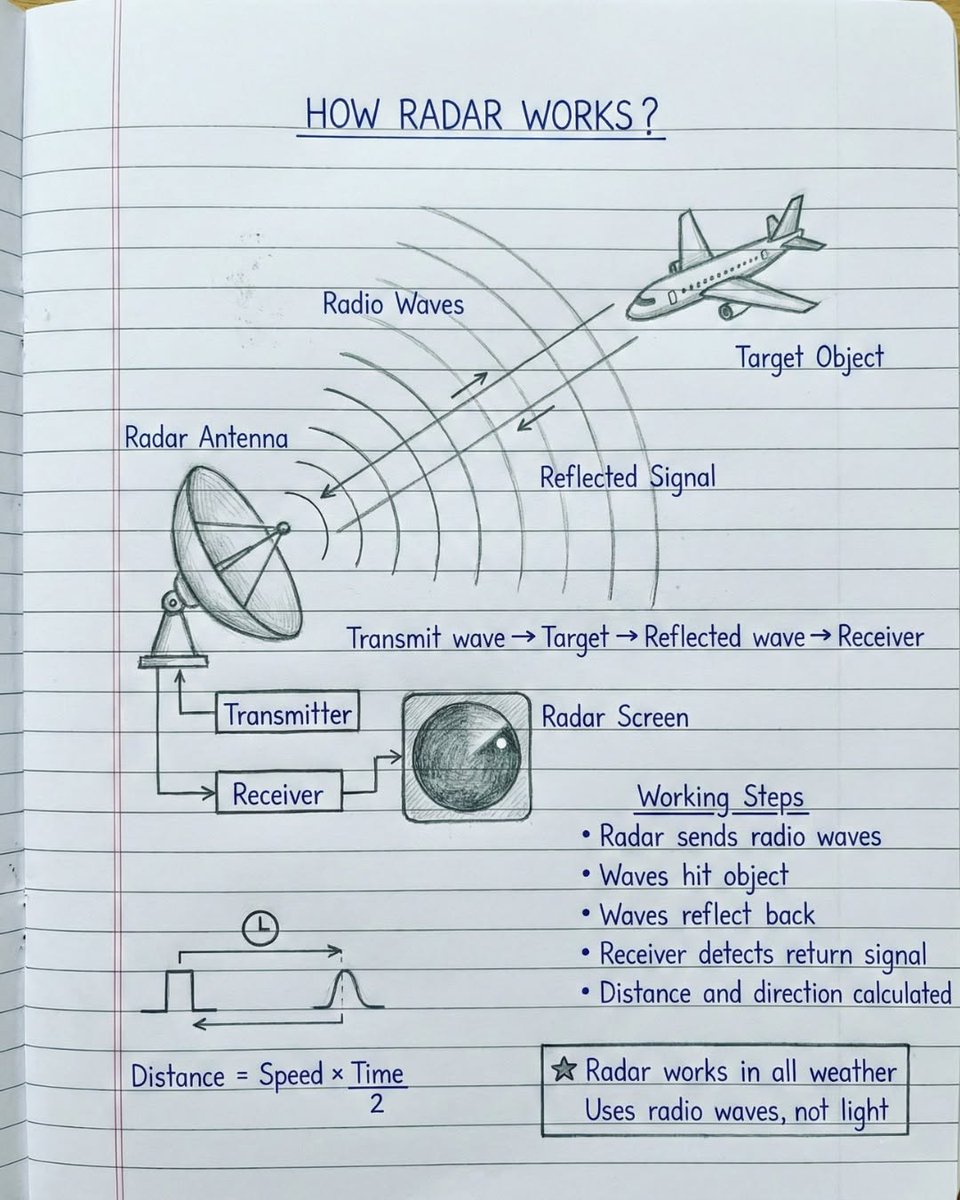 HOW RADAR WORKS?
Radio Waves
Target Object
Radar Antenna
Reflected Signal
Transmit wave → Target → Reflected wave → Receiver
Transmitter
Radar Screen
Receiver
Working Steps
• Radar sends radio waves
• Waves hit object
• Waves reflect back
• Receiver detects return signal
• Distance and direction calculated
Distance = Speed × Time
2
★ Radar works in all weather
Uses radio waves, not light